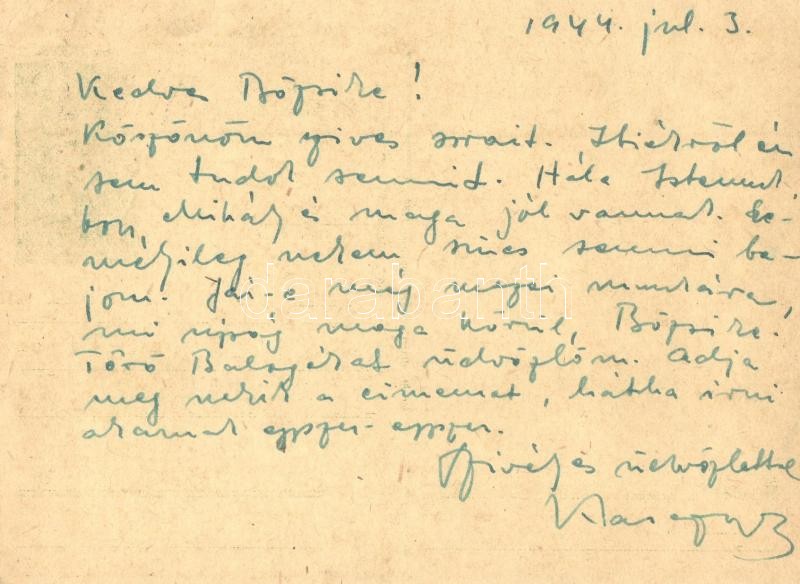 1944. jul. 3.
Kedves Böpsike!
Köszönöm szives sorait. Ibiékről én
sem tudok semmit. Hála Istennek,
hogy Mihály és maga jól vannak. Sze-
mélyileg nekem sincs semmi ba-
jom. Jár-e még mezei munkára,
mi ujság maga körül, Böpsike?
Törő Balogékat üdvözlöm. Adja
meg nekik a cimemet, hátha irni
akarnak egyszer-egyszer.
Szivélyes üdvözlettel
darabanth